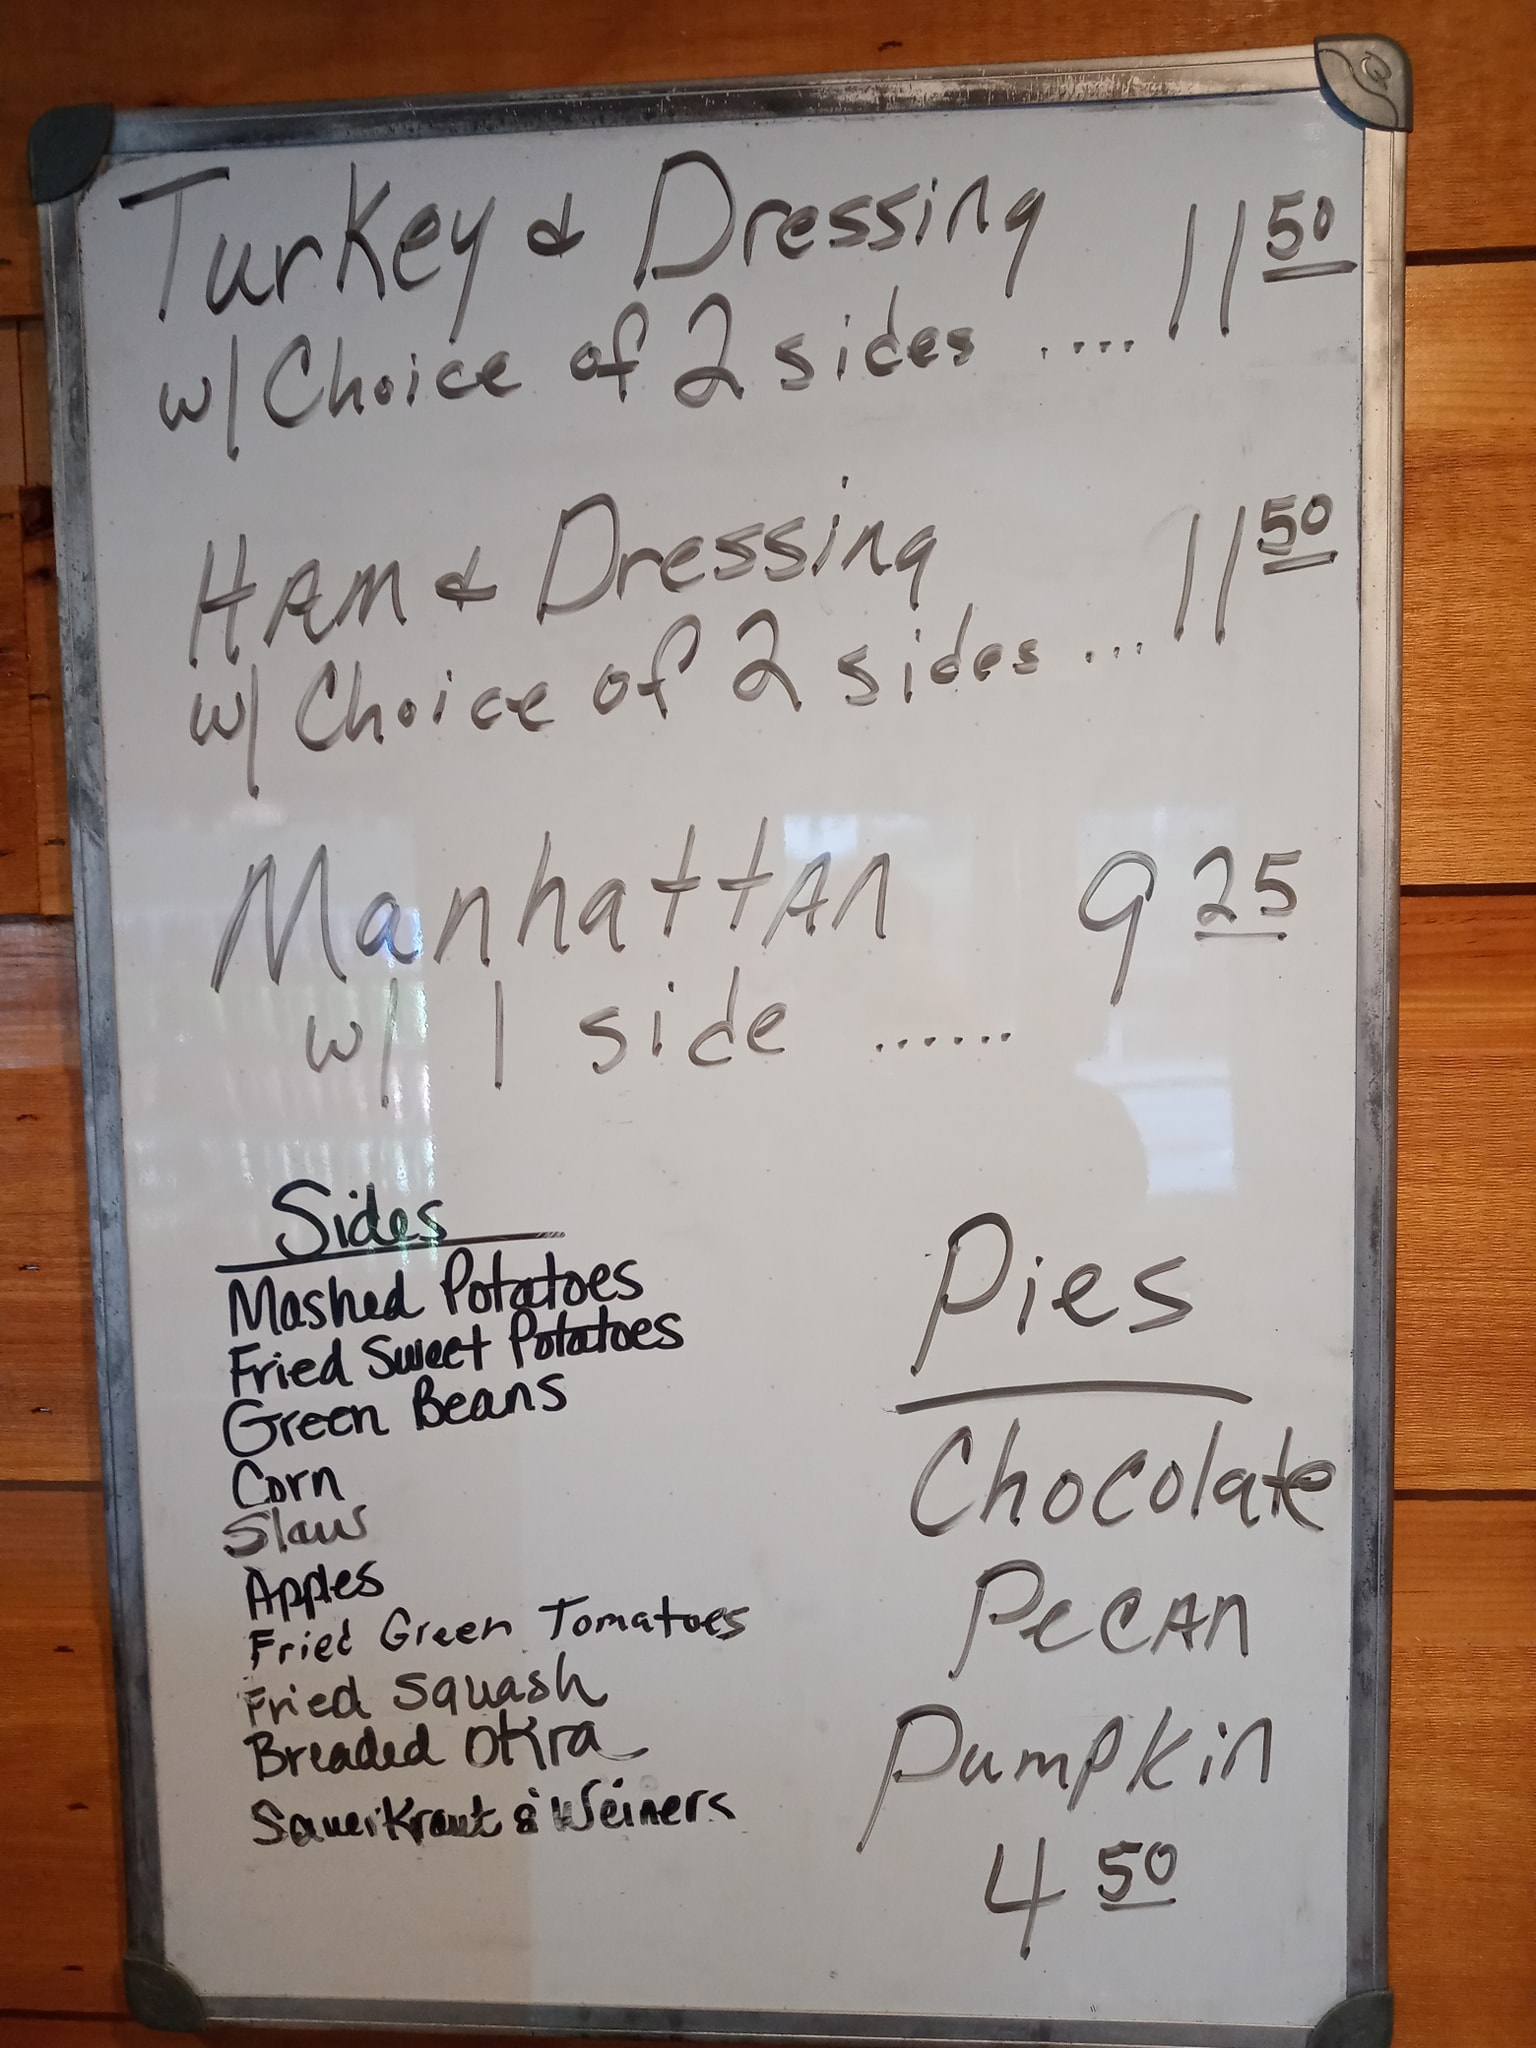 Turkey & Dressing 11 50
w/ Choice of 2 sides ....
HAM & Dressing 11 50
w/ Choice of 2 sides ...
ManhattAn 9 25
w/ 1 side ......
Sides
Mashed Potatoes
Fried Sweet Potatoes
Green Beans
Corn
Slaw
Apples
Fried Green Tomatoes
Fried Squash
Breaded OKra
SauerKraut & Weiners
Pies
Chocolate
PecAn
Pumpkin
4 50